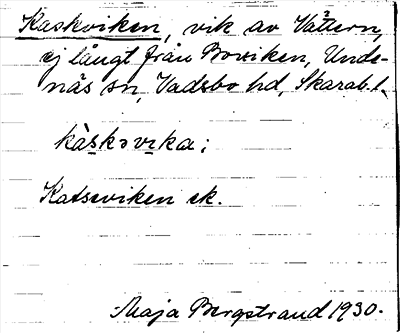 Kaskviken, vik av Vättern,
ej långt från Boviken, Unde-
näs sn, Vadsbo hd, Skarab. l.
kàskəvɩka;
Katseviken ek.
Maja Bergstrand 1930.